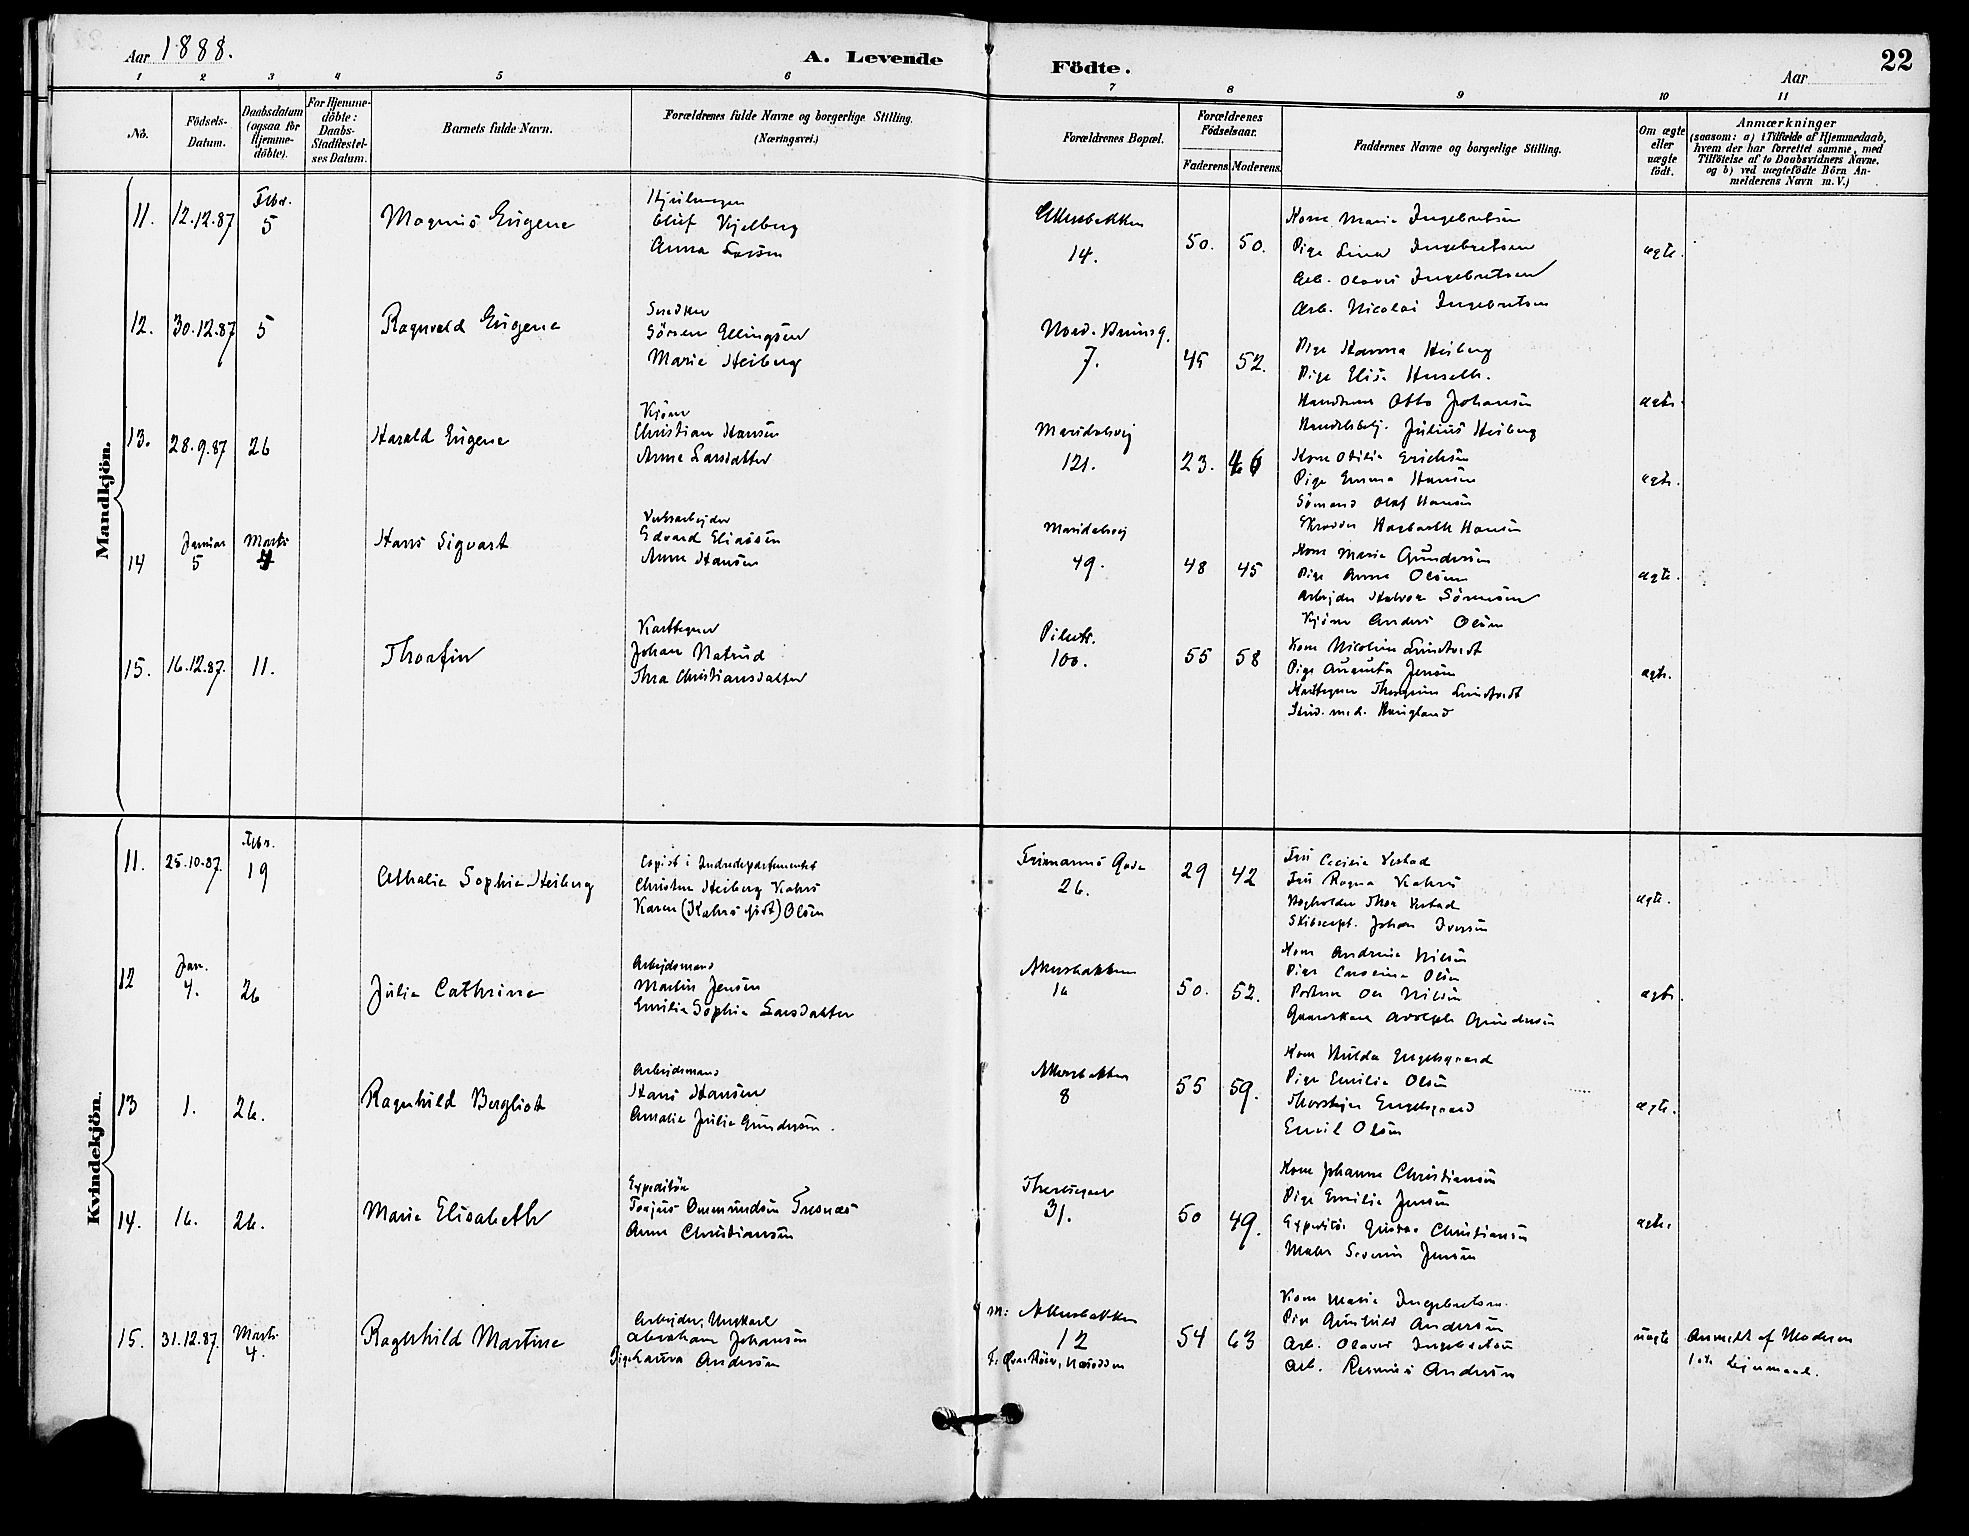 Aar 1888.
A. Levende Födte.
Aar
22
1 2 3 4 5 6 7 8 9 10 11
No.
Födsels-Datum.
Daabsdatum (ogsaa for Hjemme-döbte).
For Hjemme-döbte: Daabs-Stadfæstel-ses Datum.
Barnets fulde Navn.
Forældrenes fulde Navne og borgerlige Stilling. (Næringsvei.)
Forældrenes Bopæl.
Forældrenes Födselsaar.
Faderens. Moderens.
Faddernes Navne og borgerlige Stilling.
Om ægte eller uægte födt.
Anmærkninger
(saasom: a) i Tilfælde af Hjemmedaab,
hvem der har forrettet samme, med
Tilföielse af to Daabsvidners Navne.
og b) ved uægtefödte Börn An-
melderens Navn m. V.)
Mandkjön.
11. 12.12.87 Febr. 5 Magnus Eugene
Oluf Kjelberg
Anna Larsen
Akersbakken
14.
50. 50.
Kone Marie Ingebretsen
Pige Lina Ingebretsen
Arb. Olaves Ingebretsen
Arb. Nicolai Ingebretsen
ægte.
12. 30.12.87 5 Ragnvald Eugene
Snedker
Sörsen Ellingsen
Marie Heiberg
7.
45 52.
Pige Hanna Heiberg
Pige Elise
Otto Johansen
Julius Heiberg
ægte.
13. 28.9.87 26 Harald Eugene
Kjörer
Christian Hansen
Anne Larsdatter
Maridalsvej
121.
23. 46
Kone Otilie Erichsen
Pige Emma Hansen
Sömand Olaf Hansen
Skrædder Hansen
ægte.
14 Januar 5 Marts 4 Hans Sigvart
Verksarbejder
Edvard Eliassen
Anne Hansen
Maridalsvej
49.
48 45
Kone Marie Gundersen
Pige Anna Olsen
Arbejder Halvor Sörensen
Kjörer Anders Olsen
ægte.
15. 16.12.87. 11. Thorfin
Karttegner
Johan Natrud
Thea Christiansdatter
Pilestr.
100.
55 58
Kone Nicoline
Pige Augusta Jensen
Karttegner
Stud. med. Haugland
ægte.
Kvindekjön.
11. 25.10.87. Febr. 19 Athalia Sophie Heiberg
Copist i Indredepartementet
Christen Heiberg Kahrs
Karen (Kahrs födt) Olsen
Frimanns Gade
26.
29 42
Fru Cecilie Vestad
Fru Ragna Kahrs
Bogholder Thor Vestad
Skibscapt. Johan Iversen
ægte.
12 Jan. 4. 26 Julie Cathrine
Arbejdsmand
Martin Jensen
Emilie Sophie Larsdatter
Akersbakken
16
50. 52.
Kone Andrine Nilsen
Pige Caroline Olsen
Ole Nilsen
Adolph Gundersen
ægte.
13 1. 26. Ragnhild Bergliot
Arbejdsmand
Hans Hansen
Amalie Julie Gundersen.
Akersbakken
8
55 59.
Kone Hulda Engelsgaard
Pige Emilie Olsen
Engelsgaard
Emil Olsen
ægte.
14. 16. 26. Marie Elisabeth
Expeditör
Torjus Ommundsen
Anne Christiansen
31.
50 49.
Kone Johanne Christiansen
Pige Emilie Jensen
Expeditör Gustav Christiansen
Maler Severin Jensen
ægte.
15. 31.12.87. Marts 4. Ragnhild Martine
Arbejder, Ungkarl
Abraham Johansen
Pige Laura Andersen
M: Akersbakken
12
54 63
Kone Marie Ingebretsen.
Pige Gunhild Andersen
Arb. Olaves Ingebretsen
Arb. Rasmus Andersen
uægte
Anmeldt af Moderen
1ste Lejermaal.